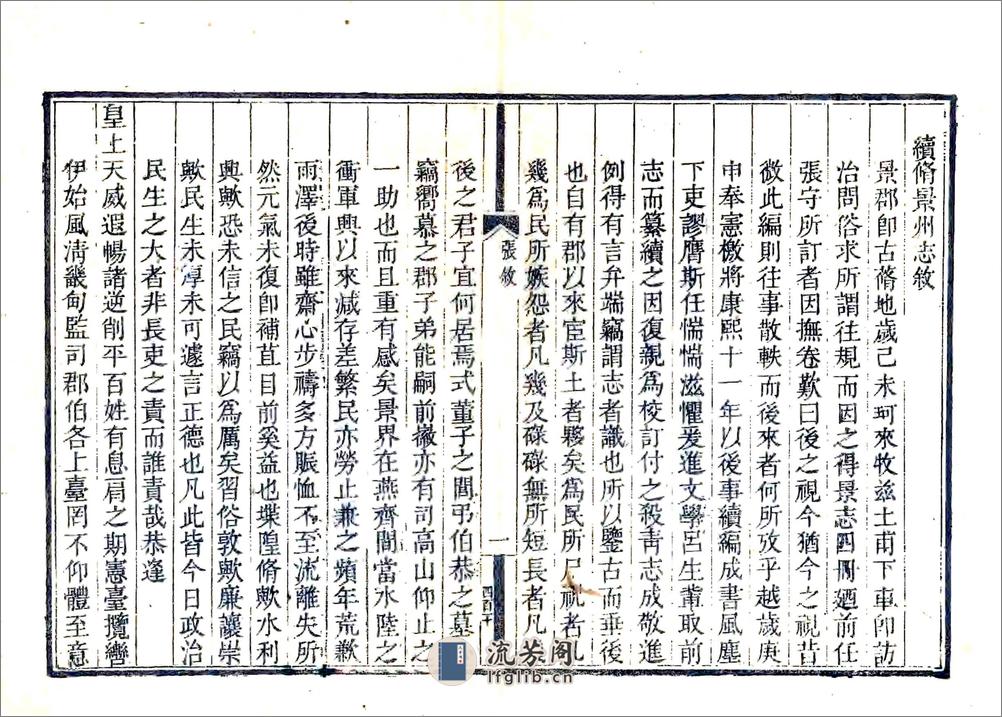 續脩景州志敘
景郡卽古蓨地歲己未珂來牧兹土甫下車卽訪
治問俗求所謂往規而因之得景志四冊廼前任
張守所訂者因撫卷歎曰後之視今猶今之視昔
微此編則往事散軼而後來者何所攷乎越歲庚
申奉憲檄將康熙十一年以後事續編成書風塵
下吏謬膺斯任惴惴滋懼爰進文學呂生軰取前
志而纂續之因復親爲校訂付之殺靑志成敬進
例得有言弁端竊謂志者識也所以鑒古而垂後
也自有郡以來宦斯土者夥矣爲民所尸祝者凡
幾爲民所嫉怨者凡幾及碌碌無所短長者凡
張敘
一
後之君子宜何居焉式董子之閭弔伯恭之墓
竊嚮慕之郡子弟能嗣前徽亦有司高山仰止之
一助也而且重有感矣景界在燕齊間當水陸之
衝軍興以來減存差繁民亦勞止兼之頻年荒歉
雨澤後時雖齋心步禱多方賑恤不至流離失所
然元氣未復卽補苴目前奚益也堞隍脩歟水利
興歟恐未信之民竊以爲厲矣習俗敦歟廉讓崇
歟民生未厚未可遽言正德也凡此皆今日政治
民生之大者非長吏之責而誰責哉恭逢
皇上天威遐暢諸逆削平百姓有息肩之期憲臺攬轡
伊始風淸畿甸監司郡伯各上臺罔不仰體至意
流芳阁
lfglib.cn